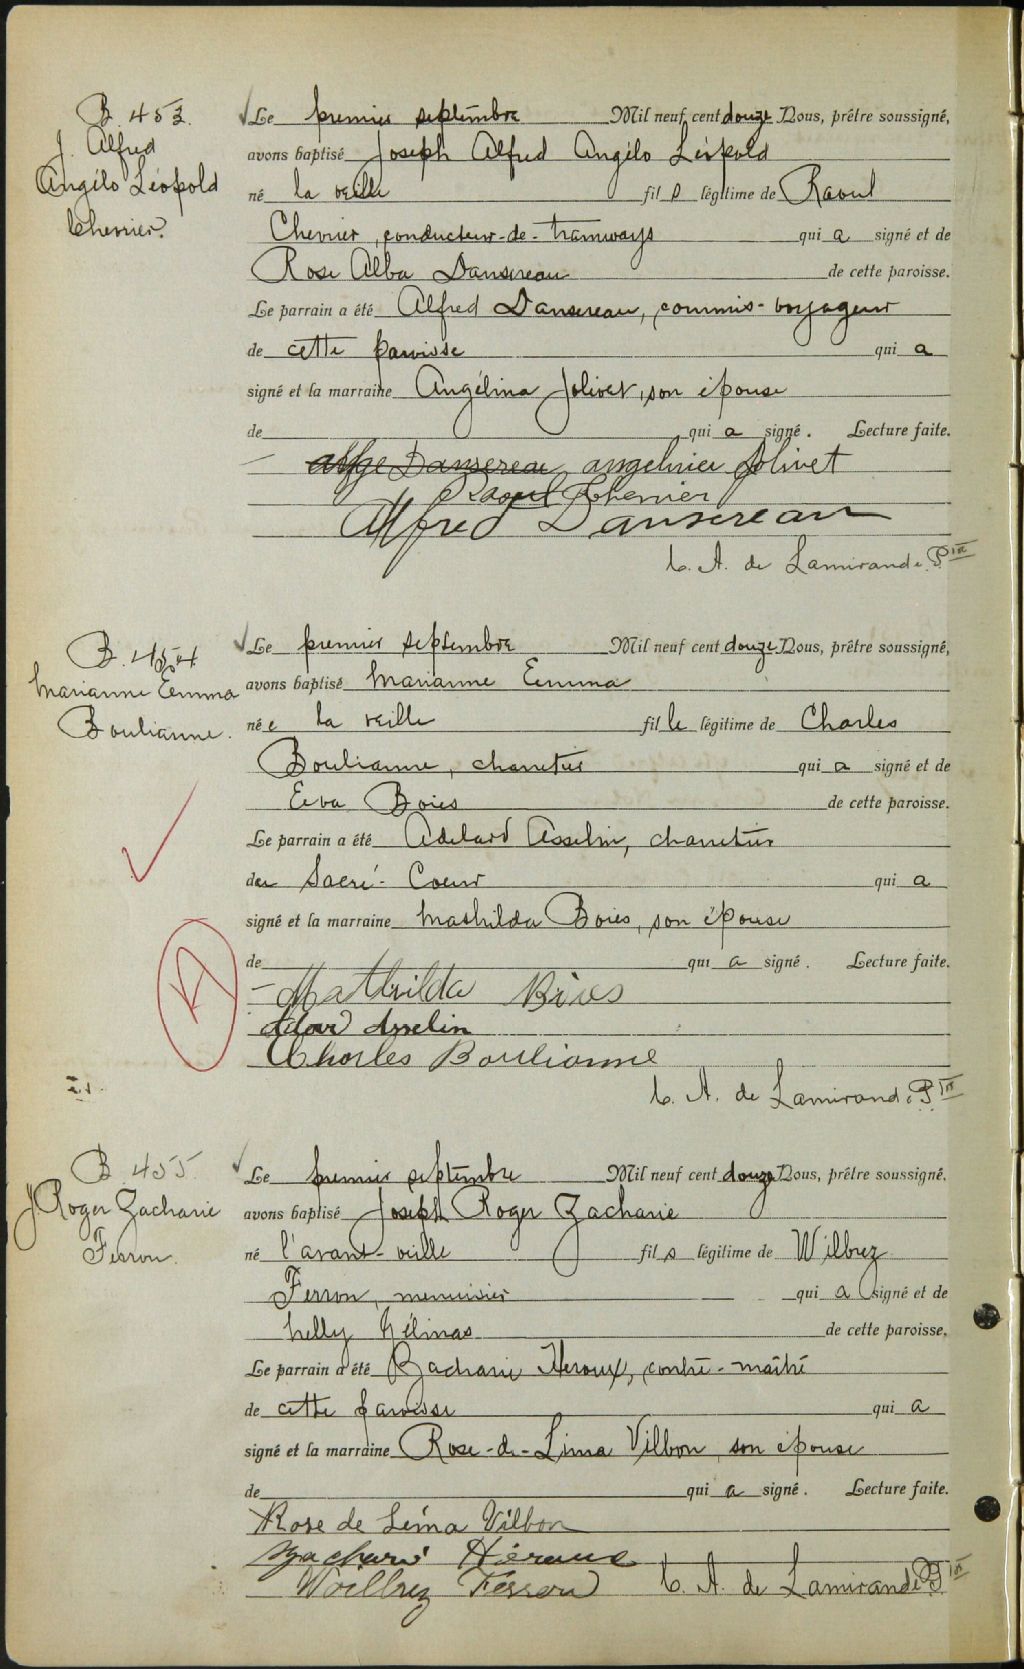 B. 453.
J. Alfred
Angélo Léopold
Chevrier.
Le premier septembre Mil neuf cent douze Nous, prêtre soussigné,
avons baptisé Joseph Alfred Angélo Léopold
né la veille fil s légitime de Raoul
Chevrier, conducteur-de-tramways qui a signé et de
Rose Alba Dansereau de cette paroisse.
Le parrain a été Alfred Dansereau, commis-voyageur
de cette paroisse qui a
signé et la marraine Angélina Jolivet, son épouse
de qui a signé. Lecture faite.
Dansereau angelinia Jolivet
Raoul Chevrier
Alfred Dansereau
C. A. de Lamirande Ptre
B. 454
Marianne Emma
Boulianne.
Le premier septembre Mil neuf cent douze Nous, prêtre soussigné,
avons baptisé Marianne Emma
née la veille fil le légitime de Charles
Boulianne, charretier qui a signé et de
Eva Boies de cette paroisse.
Le parrain a été Adelard Asselin, charretier
du Sacré-Coeur qui a
signé et la marraine Mathilda Boies, son épouse
de qui a signé. Lecture faite.
Mathilda Boies
Adlar Asselin
Charles Boulianne
C. A. de Lamirande Ptre
B. 455.
J. Roger Zacharie
Ferron.
Le premier septembre Mil neuf cent douze Nous, prêtre soussigné.
avons baptisé Joseph Roger Zacharie
né l'avant-veille fil s légitime de Wilbrez
Ferron, menuisier qui a signé et de
Nelly Gélinas de cette paroisse.
Le parrain a été Zacharie Heroux, contre-maître
de cette paroisse qui a
signé et la marraine Rose-de-Lima Vilbon, son épouse
de qui a signé. Lecture faite.
Rose de Lima Vilbon
Zacharie Héroux
Woilbrez Ferron C. A. de Lamirande Ptre